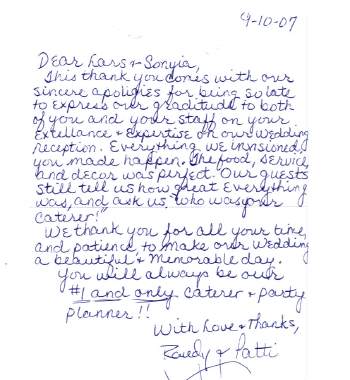 9-10-07
Dear Lars & Sonyia,
This thank you comes with our
sincere apoligies for being so late
to express our gratitude to both
of you and your staff on your
Excellance & Expertise on our wedding
reception. Everything we invisioned,
you made happen. The food, service,
and decor was perfect. Our guests
still tell us how great Everything
was, and ask us "who was your
caterer!"
We thank you for all your time,
and patience to make our wedding
a beautiful & memorable day.
You will always be our
#1 and only caterer & party
planner!!
With Love & Thanks,
& Patti